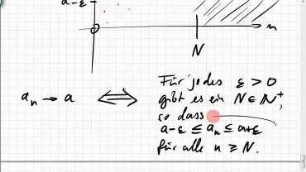 a-ε
0
N
n
Für jedes ε > 0
gibt es ein N ∈ ℕ⁺,
a_n → a ⟺ so dass
a-ε ≤ a_n ≤ a+ε
für alle n ≥ N.